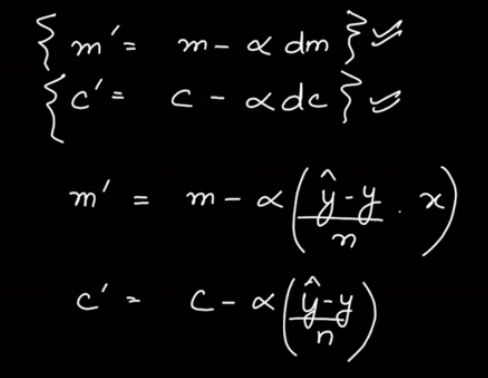 { m' = m - α dm }
{ c' = c - α dc }
m' = m - α ( (ŷ - y)/n . x )
c' = c - α ( (ŷ - y)/n )